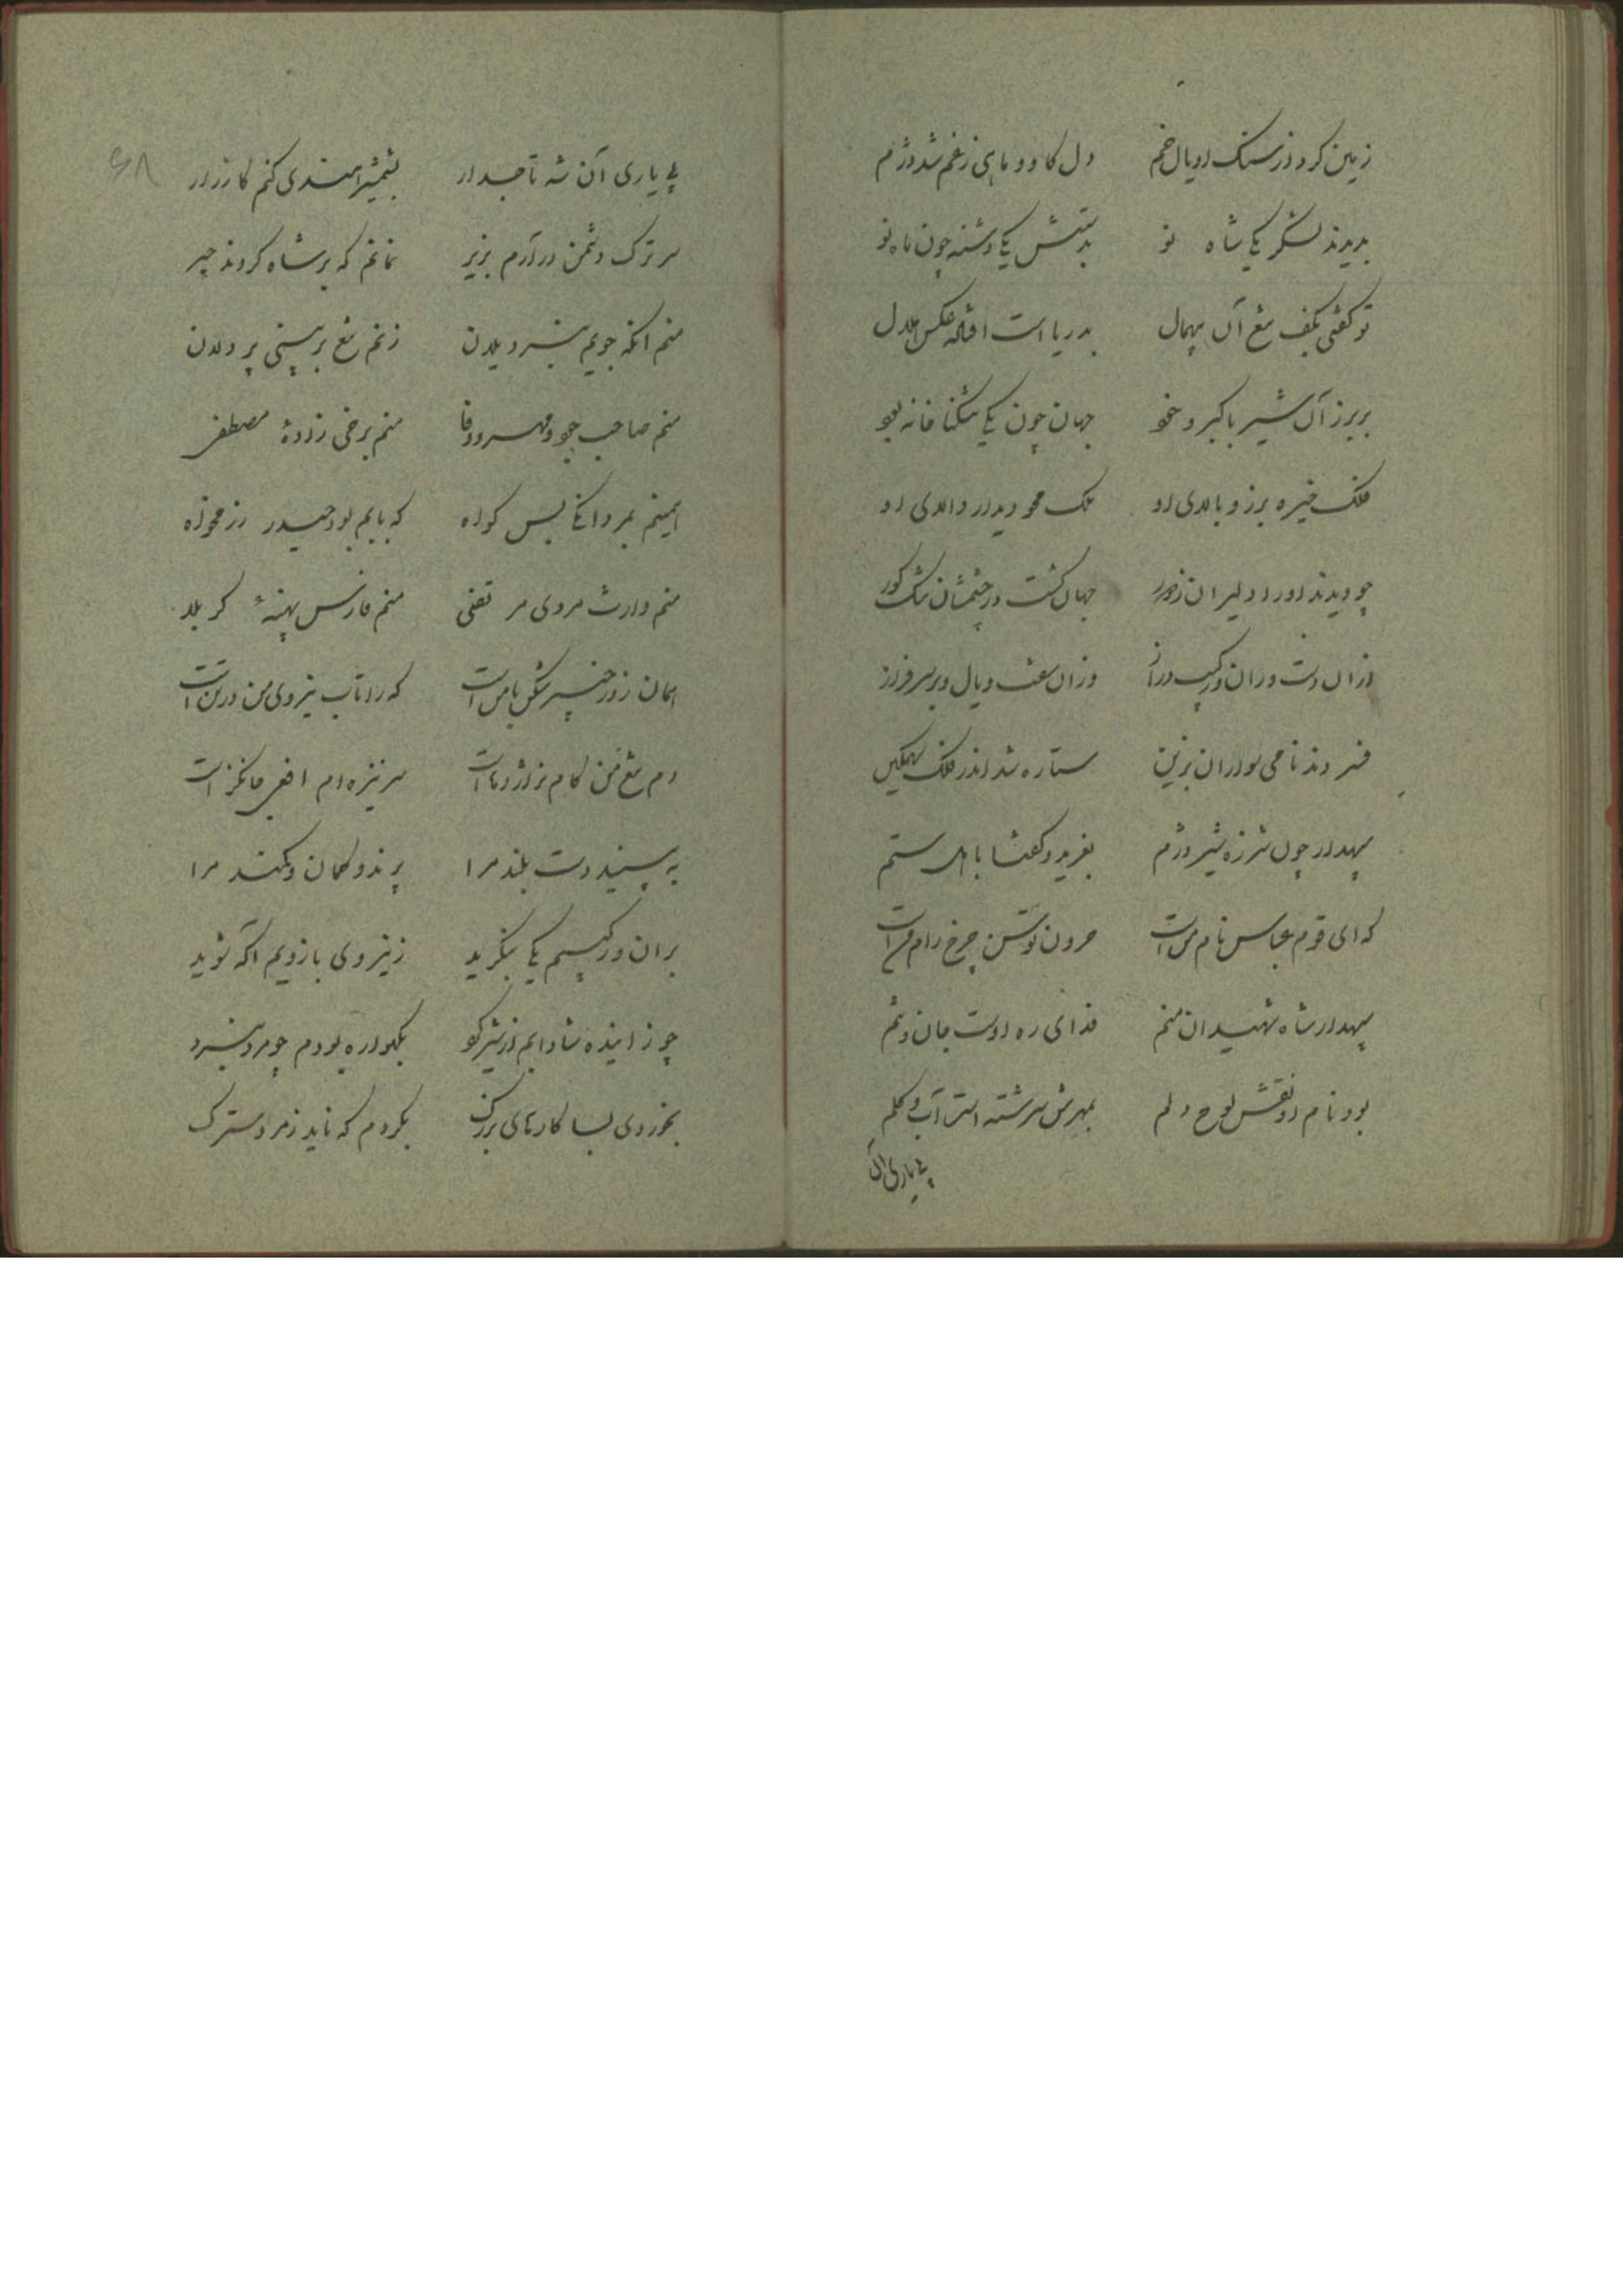 زمین کرد از سنک او یال خم دل کاو و ماهی ز غم شد دژم
بدیدند لشکر یکی شاه نو بدستش یکی دشنه چون ماه نو
تو گفتی بکف تیغ آن بیهمال بدریا است افتاده عکس هلال
بزیر آن شیر با کبر و خود جهان چون یکی تنکنا خانه بود
فلک خیره برز و بالای او ملک محو دیدار والای او
چو دیدند او را دلیران ز دور جهان کشت در چشمشان تنک کور
از آن دست و ران و رکیب دراز وزان سفت و یال و بر سرفراز
فسردند نامی سواران بزین ستاره شد اندر فلک سهمکین
سپهدار چون شرزه شیر دژم بغرید و کفتا باهل ستم
که ای قوم عباس نام من است حرون توسن چرخ رام من است
سپهدار شاه شهیدان منم فدای ره اوست جان و تنم
بود نام او نقش لوح دلم بمهرش سرشته است آب و کلم
پی یاری آن
۶۸
پی یاری آن شه تاجدار بشمشیر هندی کنم کارزار
سر ترک دشمن در آرم بزیر نمانم که بر شاه کردند چیر
منم آنکه جویم نبرد یلان زنم تیغ بر بینی پر دلان
منم صاحب جود و مهر و وفا منم برخی زادهٔ مصطفی
همینم بمردانگی بس کواه که بابم بود حیدر رزمخواه
منم وارث مردی مرتضی منم فارس پهنهٔ کربلا
همان زور خیبر شکن با من است که را تاب نیروی من در تن است
دم تیغ من کام نر اژدها است سر نیزه ام افعی جانکزا است
به بینید دست بلند مرا پرند و کمان و کمند مرا
بران و رکیبم یکی بنکرید ز نیروی بازویم آکه شوید
چو زاینده شد مامم از شیر کو بکهواره بودم چو مرد نبرد
بخوردی بسا کارهای بزرک بکردم که ناید ز مرد سترک